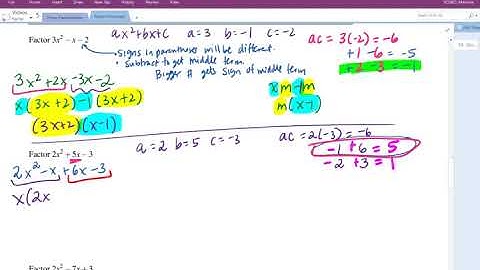 Factor 3x² – x – 2
ax²+bx+c a=3 b=-1 c=-2
ac = 3(-2) = -6
• Signs in parentheses will be different.
+1 -6 = -5
• Subtract to get middle term.
+2 -3 = -1
Bigger # gets sign of middle term
3x²+2x -3x-2
x m -1m
x(3x+2) -1(3x+2)
m(x-1)
(3x+2)(x-1)
Factor 2x² + 5x – 3
a=2 b=5 c=-3
ac = 2(-3) = -6
-1 +6 = 5
2x²-x+6x-3
-2 +3 = 1
x(2x
Factor 2x² – 7x + 3